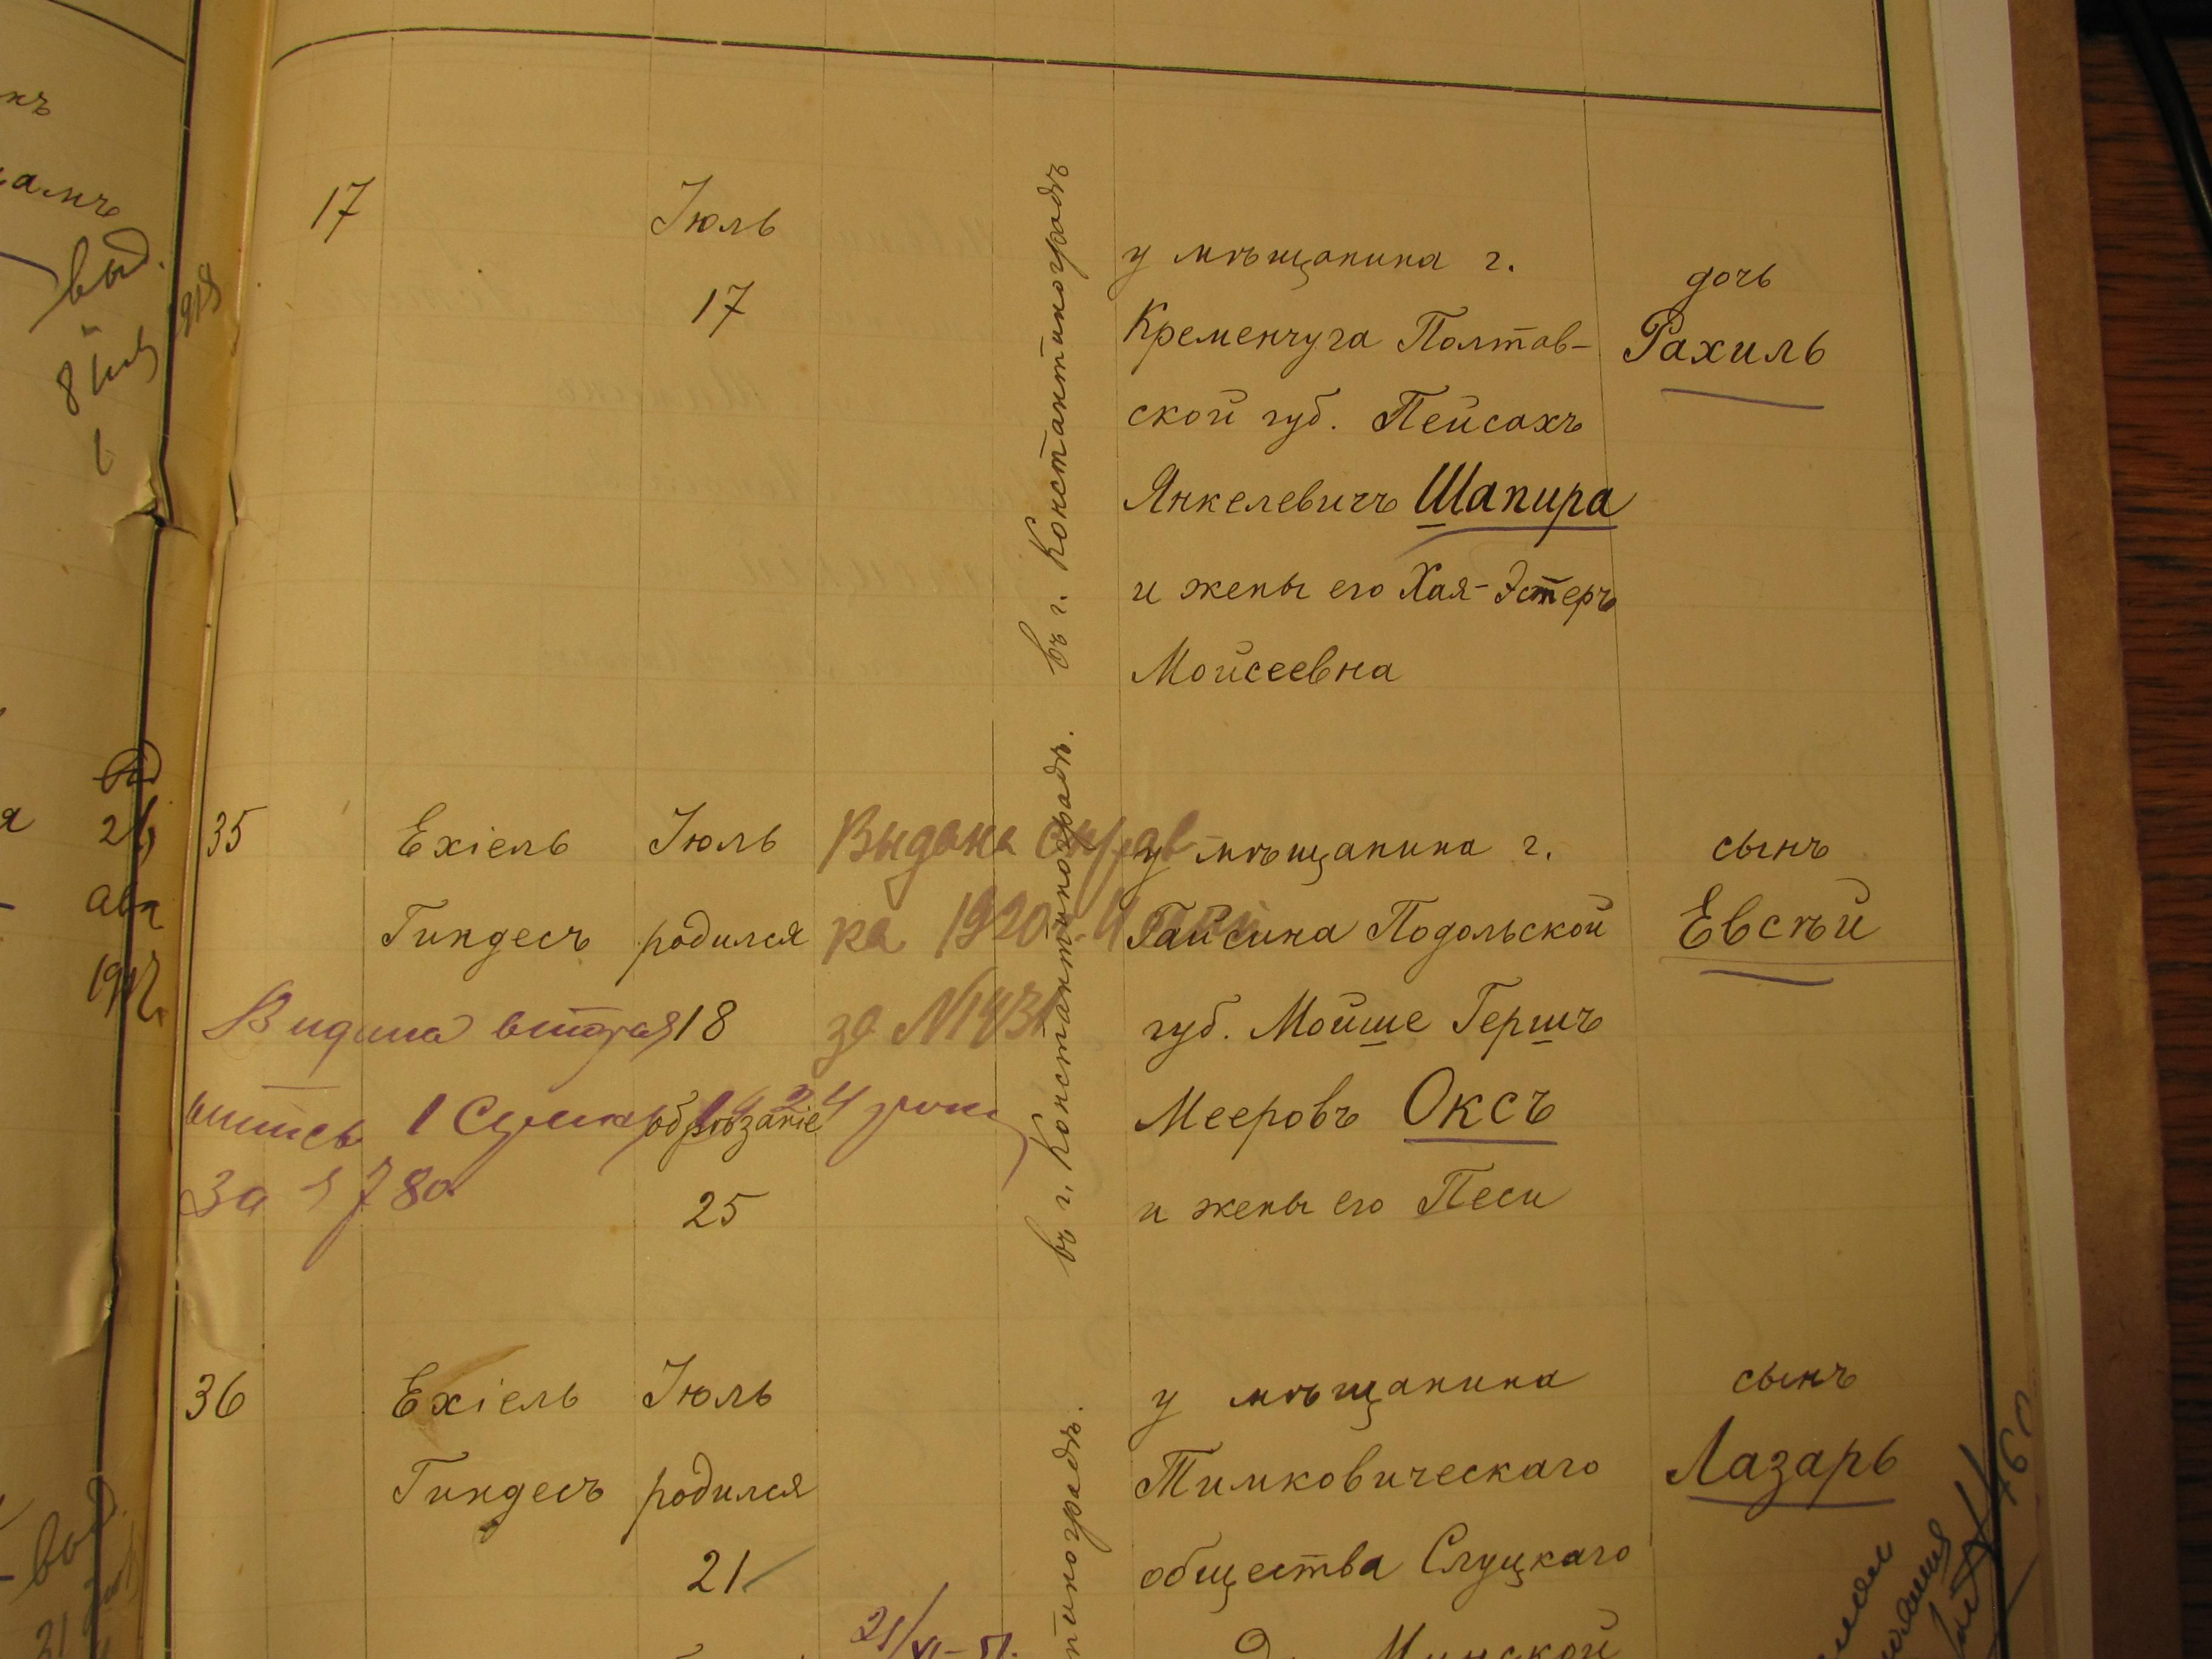 17
Іюль
17
въ г. Константиноградѣ
у мѣщанина г.
Кременчуга Полтав-
ской губ. Пейсахъ
Янкелевичъ Шапира
и жены его Хая-Эстеръ
Мойсеевна
дочь
Рахиль
35
Ехіель
Гиндесъ
Іюль
родился
18
обрѣзаніе
25
Выдана справ
ка 1920
за №1431
въ г. Константиноградѣ.
у мѣщанина г.
Гайсина Подольской
губ. Мойше Гершъ
Мееровъ Оксъ
и жены его Песи
сынъ
Евсѣй
вторая
За 1780
36
Ехіель
Гиндесъ
Іюль
родился
21
21/XI-51.
тиноградѣ.
у мѣщанина
Тимковическаго
общества Слуцкаго
Минской
сынъ
Лазарь